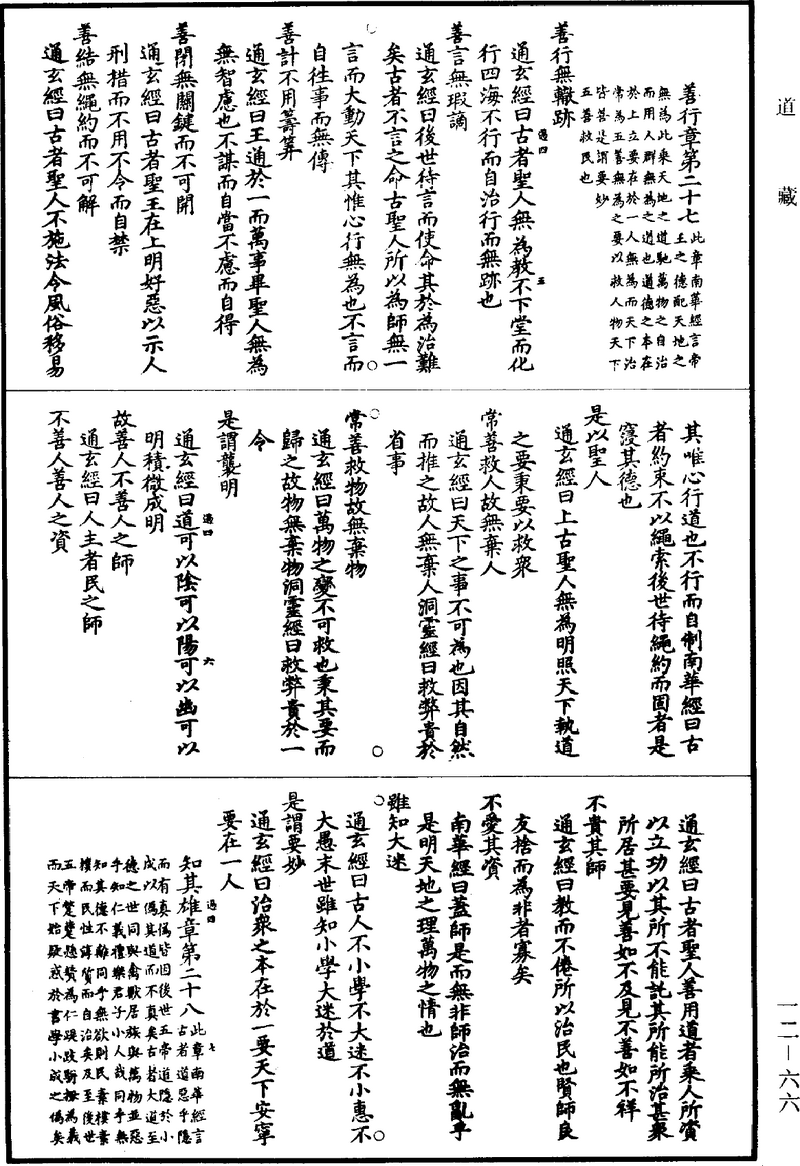 道藏
善行章第二十七此章南華經言帝
王之德配天地之
無為此乘天地之道馳萬物之自治
而用人群無為之道也道德之本在
於上立要在於一人無為而天下治
常為五善無為之要以救人物天下
皆善是謂要妙
五善救民也
善行無轍跡
通玄經曰古者聖人無為教不下堂而化
行四海不行而自治行而無跡也
善言無瑕謫
通玄經曰後世待言而使命其於為治難
矣古者不言之命古聖人所以為師無一
言而大動天下其惟心行無為也不言而
自往事而無傳
善計不用籌筭
通玄經曰王通於一而萬事畢聖人無為
無智慮也不謀而自當不慮而自得
善閉無關鍵而不可開
通玄經曰古者聖王在上明好惡以示人
刑措而不用不令而自禁
善結無繩約而不可解
通玄經曰古者聖人不施法令風俗移易
其唯心行道也不行而自制南華經曰古
者約束不以繩索後世待繩約而固者是
寖其德也
是以聖人
通玄經曰上古聖人無為明照天下執道
之要秉要以救衆
常善救人故無棄人
通玄經曰天下之事不可為也因其自然
而推之故人無棄人洞靈經曰救弊貴於
省事
常善救物故無棄物
通玄經曰萬物之變不可救也秉其要而
歸之故物無棄物洞靈經曰救弊貴於一
令
是謂襲明
通玄經曰道可以陰可以陽可以幽可以
明積微成明
故善人不善人之師
通玄經曰人主者民之師
不善人善人之資
通玄經曰古者聖人善用道者乘人所資
以立功以其所不能託其所能所治其衆
所居甚要見善如不及見不善如不祥
不貴其師
通玄經曰教而不倦所以治民也賢師良
友捨而為非者寡矣
不愛其資
南華經曰蓋師是而無非師治而無亂乎
是明天地之理萬物之情也
雖知大迷
通玄經曰古人不小學不大迷不小惠不
大愚末世雖知小學大迷於道
是謂要妙
通玄經曰治衆之本在於一要天下安寧
要在一人
知其雄章第二十八此章南華經言
古者道惡乎隱
而有真偽皆因後世五帝道隱於小
成以偽其道而不真矣古者大道至
德之世同與禽獸居族與萬物並惡
乎知仁義禮樂君子小人哉同乎無
知其德不離同乎無欲則民素樸素
樸而民性淳質而自治矣及至後世
五帝蹩躠為仁踶跂為義
而天下始疑惑於書學小成之偽矣
一二—六六